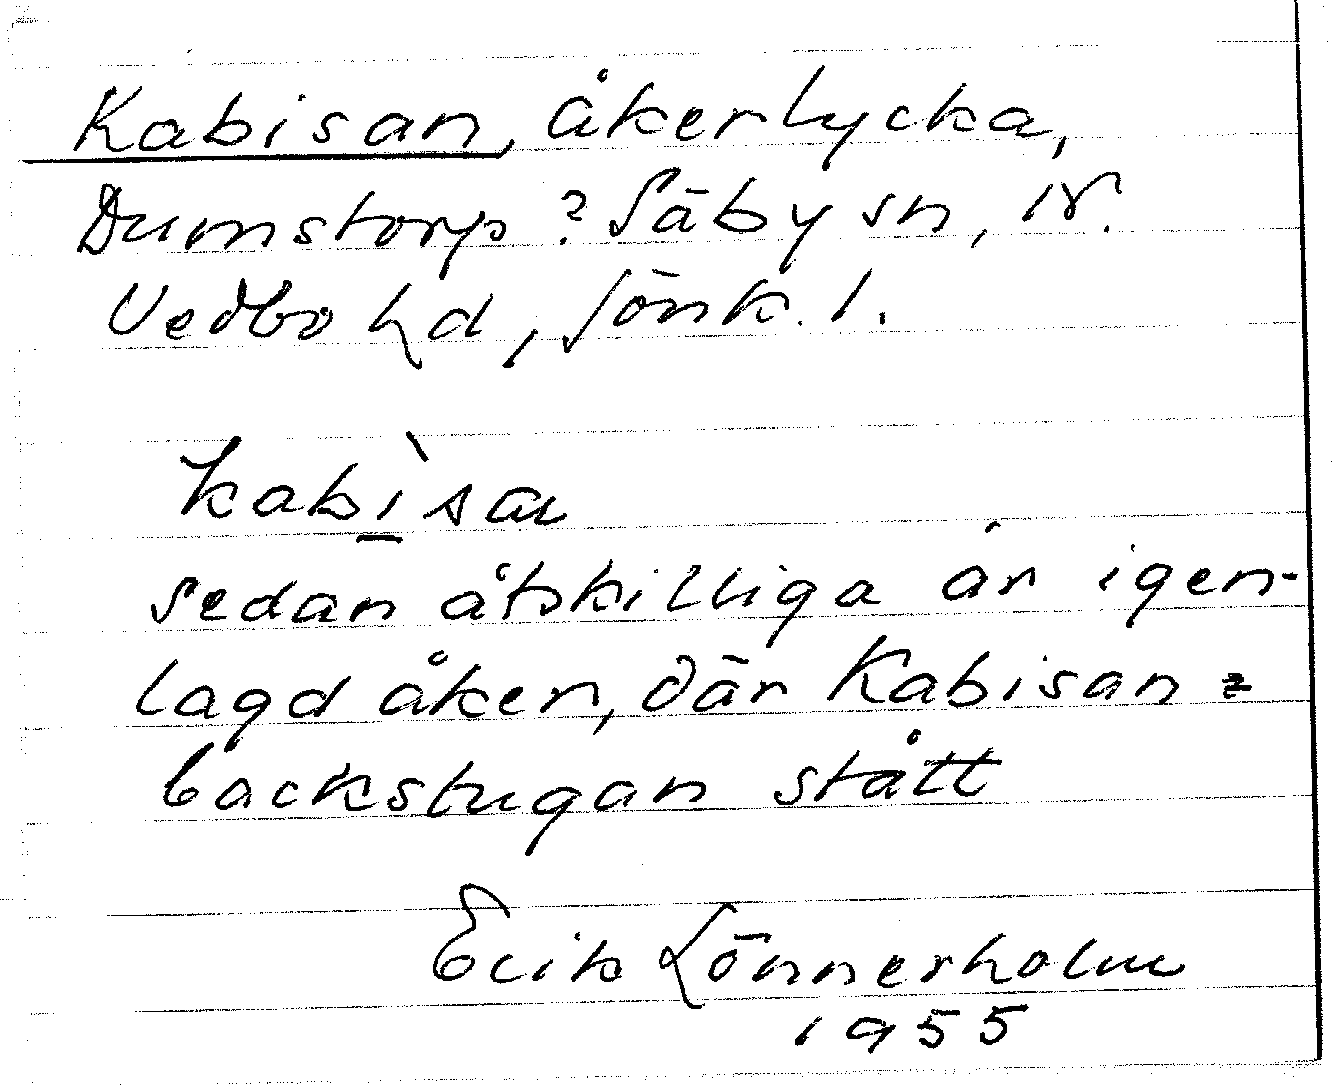 Kabisan, åkerlycka,
Dumstorp? Säby sn, N.
Vedbo hd, Jönk. l.
kabìsan
sedan åtskilliga år igen-
lagd åker, där Kabisan=
backstugan stått
Erik Lönnerholm
1955